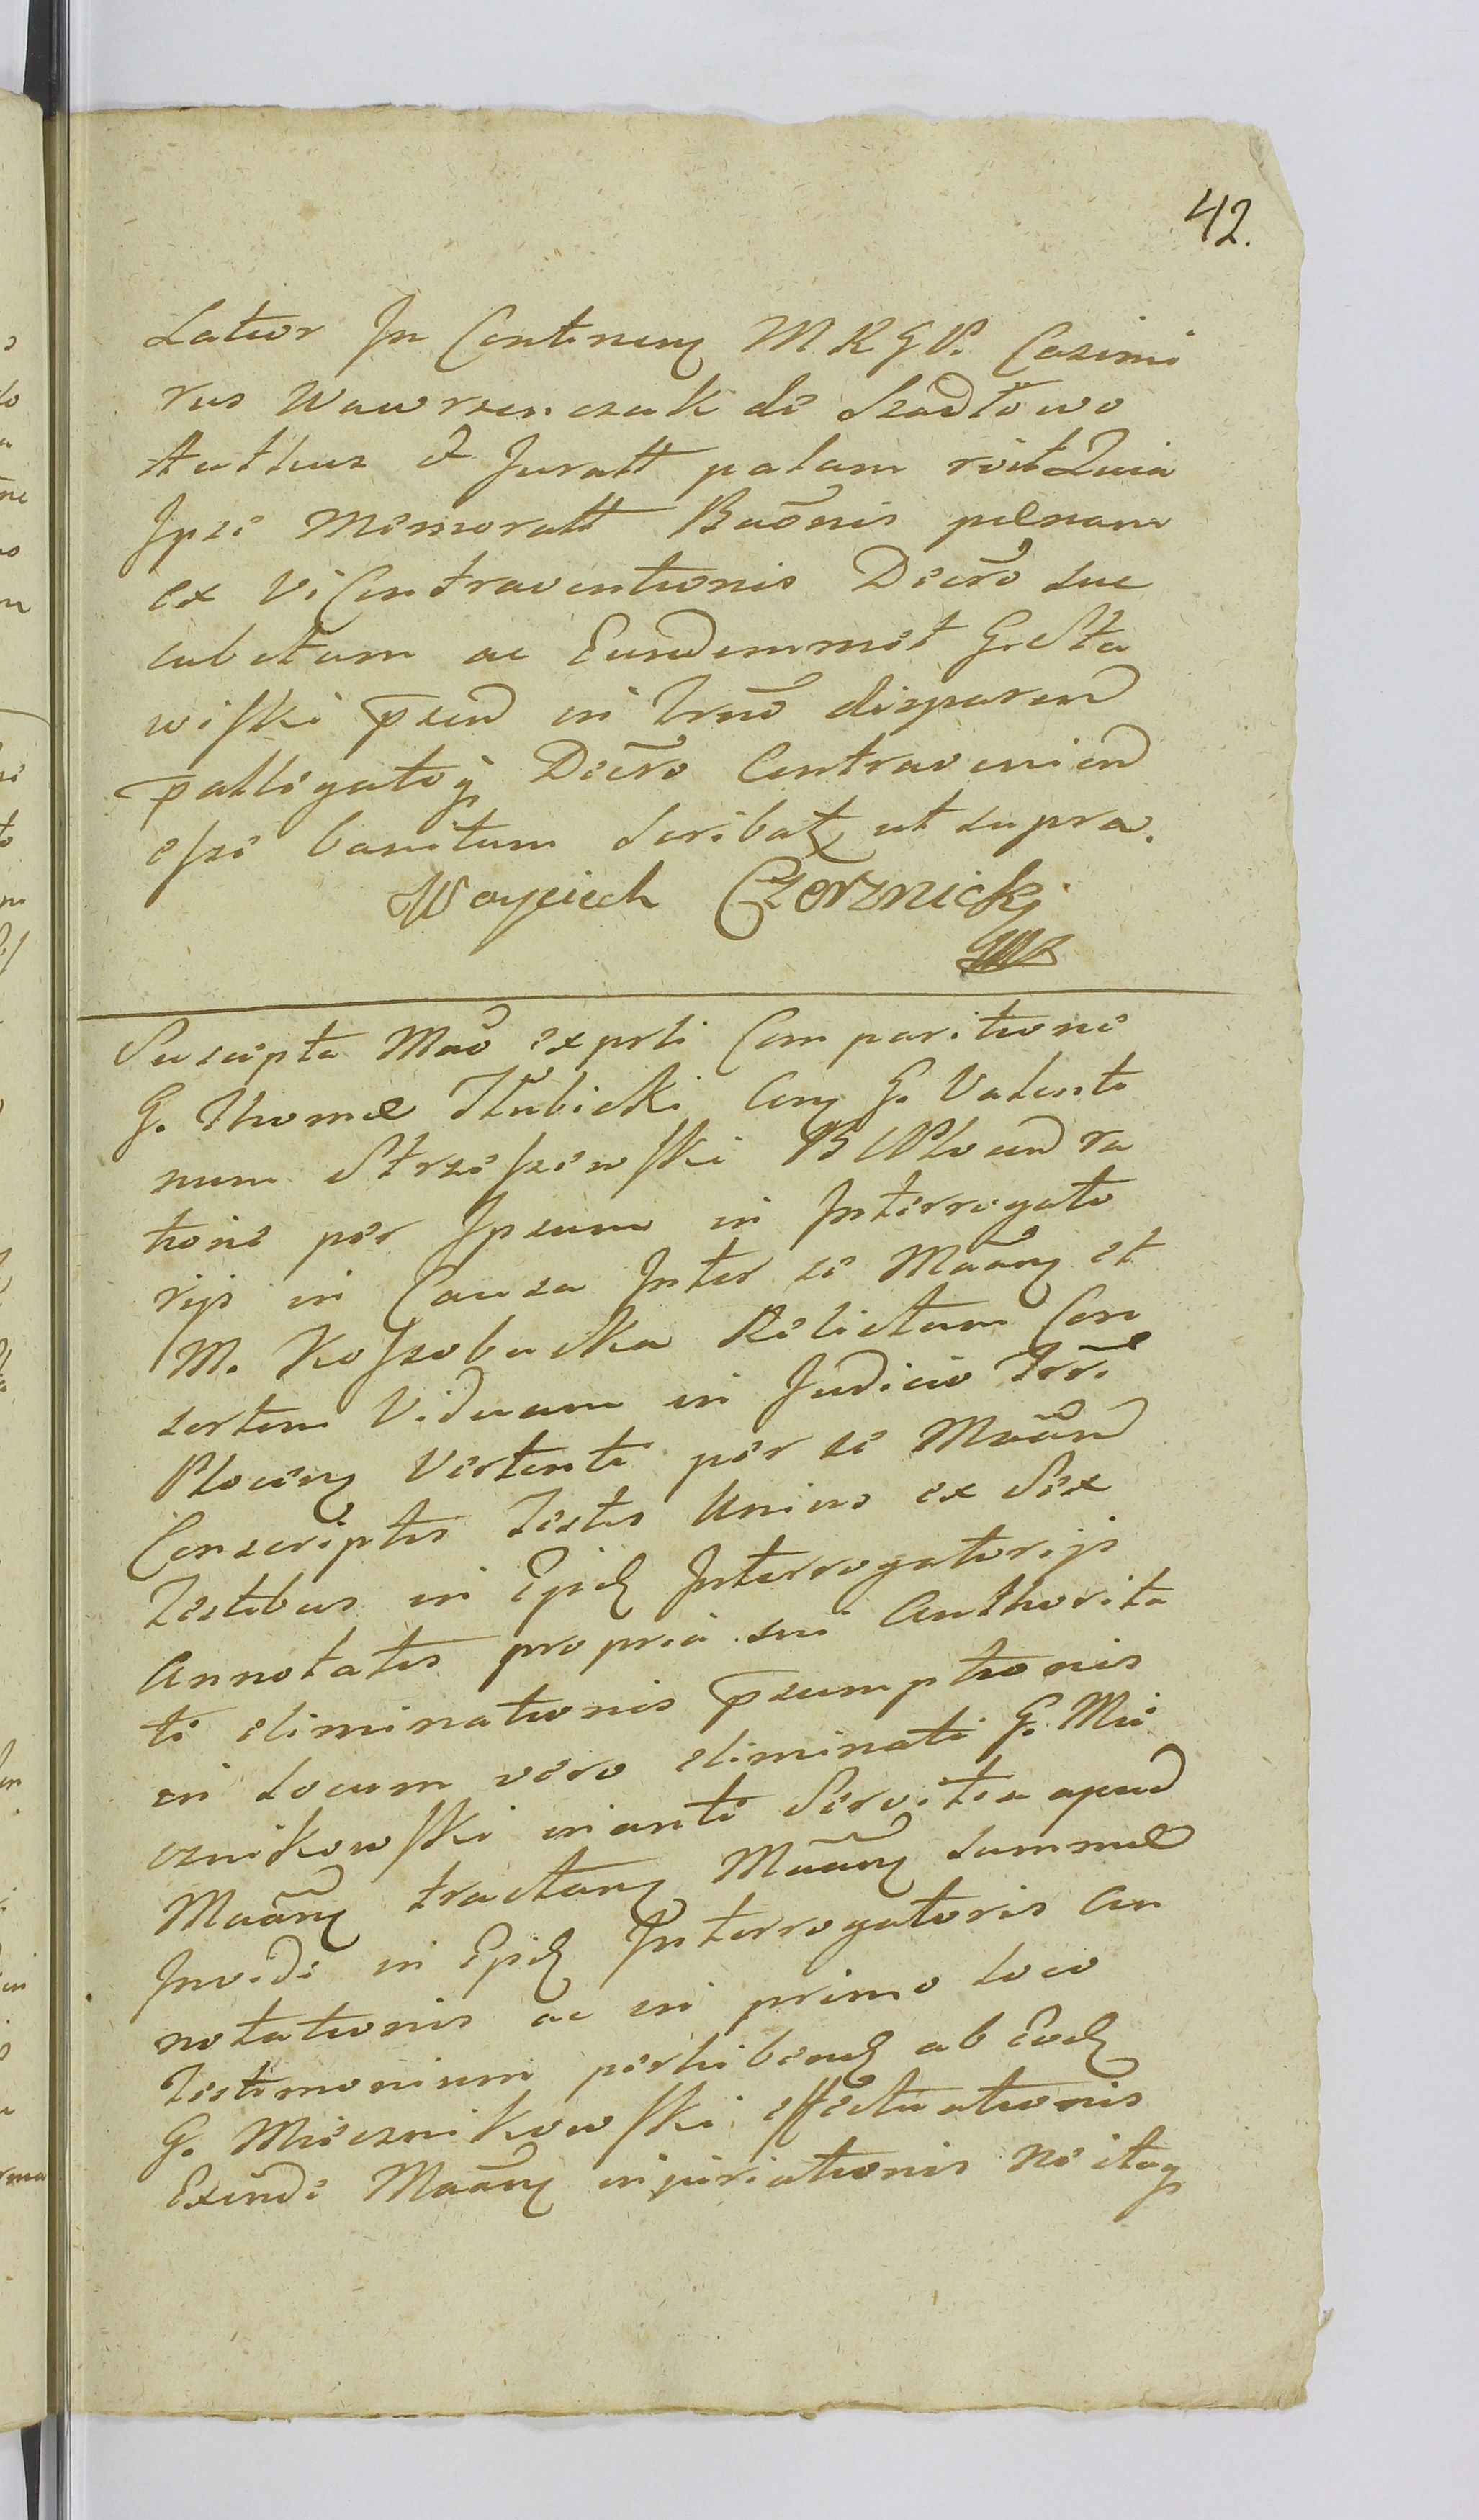 42.
Lator In Continen M R G V. Casimi
rus Wawrzenczak de Szadłowo
Authus & Juratt palam rõit Quia
Ipse Memoratt Bãonis pænam
ex Vi Contraventionis Decrõ suc
cubitum ac Eundemmet G. Sta
wiſki p̄send in Trnõ disparend
p̄allegatoq Decrõ Contravenien
eſse banitum scribat ut supra.
Woyciech Czerznicki
Suscepta Mão ex prti Comparitione
G. Thomæ Dłubicki Con G. Valenti
num Strzeſzewſki B P Plocen ra
tione per Ipsum in Interrogato
rijs in Causa Inter se Mãan et
M. Koſzobucka Relictam Con
sortem Viduam in Judicio Trrĩ
Plocen Vertenti per se Mãan
Conscriptis Testis Unius ex Sex
Testibus in Ejsd Interrogatorijs
Annotatis propria sui Authorita
te eliminationis p̄sumptionis
in Locum vero eliminati G. Mie
cznikowſki inante Servitia apud
Mãan tractan Mãan summæ
Invide in Ejsd Interrogatoris An
notationis ac in primo loco
Testimonium perhibend ab Eod
G. Miecznikowſki effectuationis
Exinde Mãan injuriationis Ne itaq